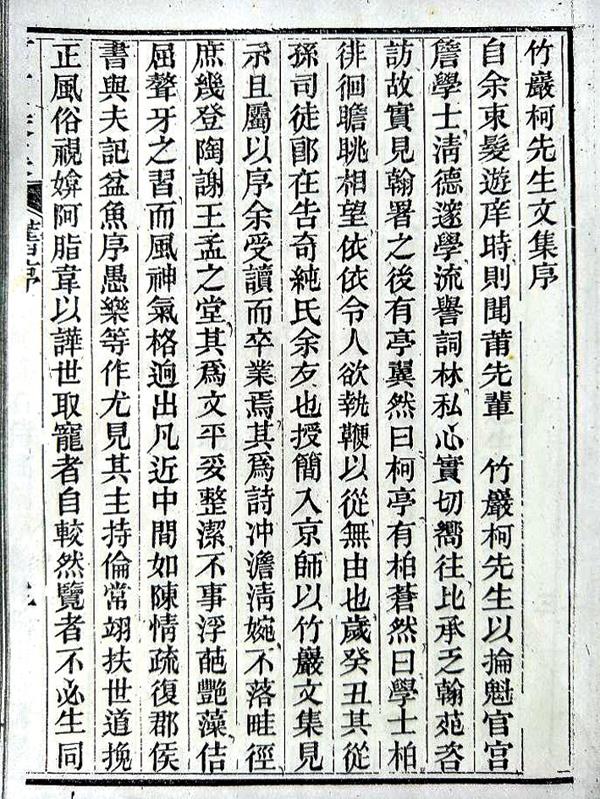 竹巖柯先生文集序
自余束髮遊庠時則聞莆先輩 竹巖柯先生以掄魁官宮
詹學士淸德邃學流譽詞林私心實切嚮往比承乏翰苑咨
訪故實見翰署之後有亭翼然曰柯亭有柏蒼然曰學士柏
徘徊瞻眺相望依依令人欲執鞭以從無由也歲癸丑其從
孫司徒郎在告奇純氏余友也授簡入京師以竹巖文集見
示且屬以序余受讀而卒業焉其爲詩冲澹淸婉不落畦徑
庶幾登陶謝王孟之堂其爲文平妥整潔不事浮葩艷藻佶
屈聱牙之習而風神氣格逈出凡近中間如陳情疏復郡侯
書與夫記盆魚序愚樂等作尤見其主持倫常翊扶世道挽
正風俗視媕阿脂韋以譁世取寵者自較然覽者不必生同